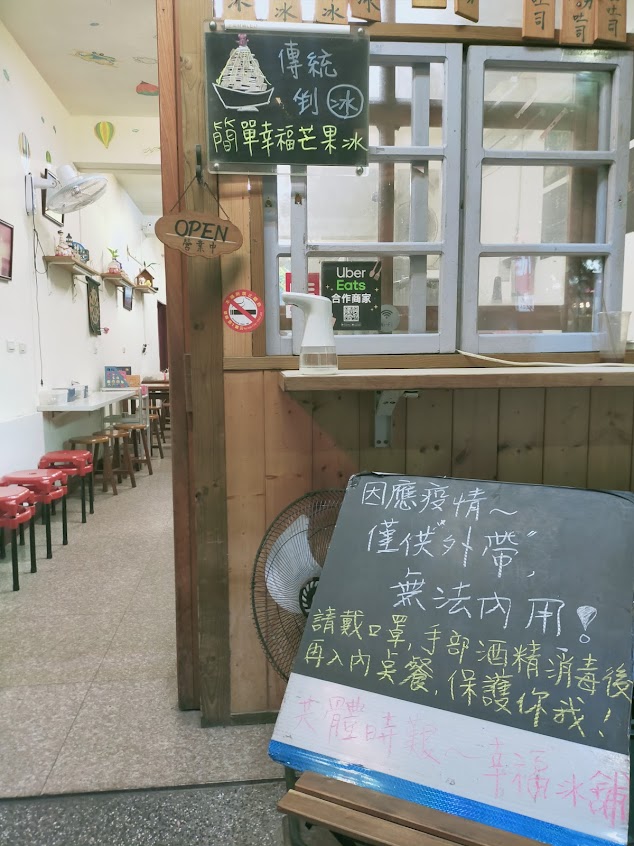 冰
冰
吐司
吐司
傳統
倒冰
簡單幸福芒果冰
OPEN
營業中
Uber
Eats
合作商家
因應疫情~
僅供"外帶",
無法內用!
請戴口罩,手部酒精消毒後
再入內点餐,保護你我!
共體時艱~幸福冰舖